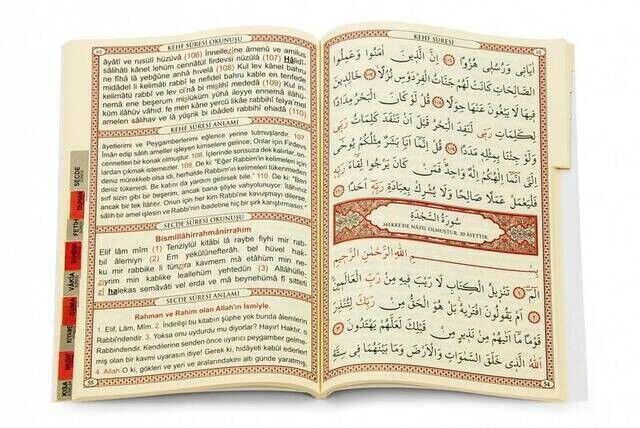 KEHF SÛRESİ OKUNUŞU
âyâtî ve rusulî hüzüvâ (106) İnnellezîne âmenû ve amilus
sâlihâti kânet lehüm cennâtül firdevsi nüzülâ (107) Hâlidî-
ne fîhâ lâ yebğûne anhâ hıvelâ (108) Kul lev kânel bahru
midâdel li kelimâti rabbî le nefidel bahru kable en tenfede
kelimâtü rabbî ve lev ci'nâ bi mislihî mededâ (109) Kul in-
nemâ ene beşerum mislüküm yûhâ ileyye ennemâ ilâhü-
küm ilâhüv vâhid, fe men kâne yercû likâe rabbihî felya'mel
amelen sâlihav ve lâ yüşrik bi ibâdeti rabbihî ehadâ (110)
KEHF SÛRESİ ANLAMI
âyetlerimi ve Peygamberlerimi eğlence yerine tutmuşlardır. 107.
İman edip sâlih ameller işleyen kimselere gelince; Onlar için Firdevs
cennetleri bir konak olmuştur. 108. İçlerinde sonsuza dek kalırlar, on-
dan çıkmak istemezler. 109. De ki: "Eğer Rabbim'in kelimeleri için
deniz mürekkeb olsa idi, herhalde Rabbim'in kelimeleri tükenmeden
deniz tükenirdi. Bir katını da yardım getirsek bile." 110. De ki: "Ben
sırf sizin gibi bir beşerim, ancak bana şöyle vahyolunuyor: İlâhınız
ancak bir tek İlâhtır. Onun için her kim Rabbi'ne kavuşmayı dilerse,
sâlih bir amel işlesin ve Rabbi'nin ibadetine hiç bir şirk karıştırmasın."
SECDE SÛRESİ OKUNUŞU
Bismillâhirrahmânirrahîm
Elif lâm mîm (1) Tenzîylül kitâbi lâ raybe fîyhi mir rab-
bil âlemiyn (2) Em yekûlûnefterâh, bel hüvel hak-
ku mir rabbike li tünzira kavmem mâ etâhüm min ne-
ziyrim min kablike leallehüm yehtedûn (3) Allâhülle-
zî halekas semâvâti vel erda ve mâ beynehümâ fî sitteti
SECDE SÛRESİ ANLAMI
Rahman ve Rahim olan Allah'ın İsmiyle.
1. Elif, Lâm, Mîm. 2. İndirilişi bu kitabın şüphe yok bunda âlemlerin
Rabbi'ndendir. 3. Yoksa onu uydurdu mu diyorlar? Hayır! Haktır, o
Rabbi'ndendir. Kendilerine senden önce uyarıcı peygamber gelme-
miş olan bir kavmi uyarasın diye! Gerek ki, hidâyeti kabul ederler!
4. Allah O ki, gökleri ve yeri ve aralarındakini altı günde yaratmış,
55
SECDE
DUHAN
FETİH
VÂKIA
KIYAME
KISA
KEHF SÛRESİ
اٰيَاتٖي وَرُسُلٖي هُزُوًا ﴿١٠٦﴾ اِنَّ الَّذٖينَ اٰمَنُوا وَعَمِلُوا
الصَّالِحَاتِ كَانَتْ لَهُمْ جَنَّاتُ الْفِرْدَوْسِ نُزُلًا ﴿١٠٧﴾ خَالِدٖينَ
فٖيهَا لَا يَبْغُونَ عَنْهَا حِوَلًا ﴿١٠٨﴾ قُلْ لَوْ كَانَ الْبَحْرُ مِدَادًا
لِكَلِمَاتِ رَبّٖي لَنَفِدَ الْبَحْرُ قَبْلَ اَنْ تَنْفَدَ كَلِمَاتُ رَبّٖي
وَلَوْ جِئْنَا بِمِثْلِهٖ مَدَدًا ﴿١٠٩﴾ قُلْ اِنَّمَا اَنَا بَشَرٌ مِثْلُكُمْ يُوحٰى
اِلَيَّ اَنَّمَا اِلٰهُكُمْ اِلٰهٌ وَاحِدٌ فَمَنْ كَانَ يَرْجُوا لِقَاءَ رَبِّهٖ
فَلْيَعْمَلْ عَمَلًا صَالِحًا وَلَا يُشْرِكْ بِعِبَادَةِ رَبِّهٖ اَحَدًا ﴿١١٠﴾
سُورَةُ السَّجْدَةِ
MEKKE'DE NÂZİL OLMUŞTUR. 30 ÂYETTİR.
بِسْمِ اللّٰهِ الرَّحْمٰنِ الرَّحٖيمِ
الٓمٓ ﴿١﴾ تَنْزٖيلُ الْكِتَابِ لَا رَيْبَ فٖيهِ مِنْ رَبِّ الْعَالَمٖينَ
﴿٢﴾ اَمْ يَقُولُونَ افْتَرٰيهُ بَلْ هُوَ الْحَقُّ مِنْ رَبِّكَ لِتُنْذِرَ
قَوْمًا مَا اَتٰيهُمْ مِنْ نَذٖيرٍ مِنْ قَبْلِكَ لَعَلَّهُمْ يَهْتَدُونَ ﴿٣﴾
اَللّٰهُ الَّذٖي خَلَقَ السَّمٰوَاتِ وَالْاَرْضَ وَمَا بَيْنَهُمَا فٖي سِتَّةِ
54